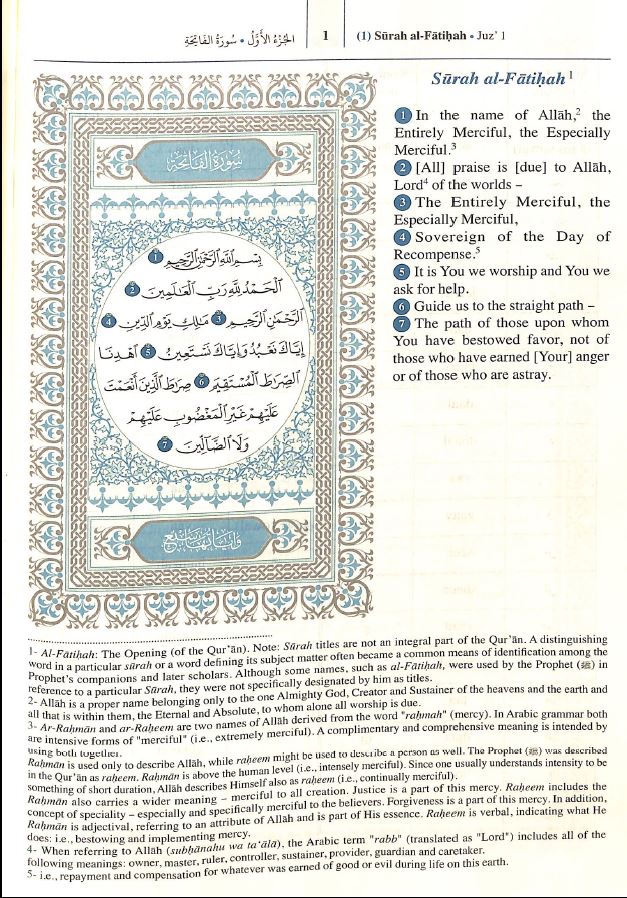 الجُزْءُ الأَوَّلُ • سُورَةُ الفَاتِحَةِ
1
(1) Sūrah al-Fātiḥah • Juz' 1
سُورَةُ الْفَاتِحَةِ
بِسْمِ ٱللَّهِ ٱلرَّحْمَٰنِ ٱلرَّحِيمِ 1
ٱلْحَمْدُ لِلَّهِ رَبِّ ٱلْعَٰلَمِينَ 2
ٱلرَّحْمَٰنِ ٱلرَّحِيمِ 3 مَٰلِكِ يَوْمِ ٱلدِّينِ 4
إِيَّاكَ نَعْبُدُ وَإِيَّاكَ نَسْتَعِينُ 5 ٱهْدِنَا
ٱلصِّرَٰطَ ٱلْمُسْتَقِيمَ 6 صِرَٰطَ ٱلَّذِينَ أَنْعَمْتَ
عَلَيْهِمْ غَيْرِ ٱلْمَغْضُوبِ عَلَيْهِمْ
وَلَا ٱلضَّآلِّينَ 7
وَآيَاتُهَا سَبْعٌ
Sūrah al-Fātiḥah¹
1 In the name of Allāh,² the
Entirely Merciful, the Especially
Merciful.³
2 [All] praise is [due] to Allāh,
Lord⁴ of the worlds –
3 The Entirely Merciful, the
Especially Merciful,
4 Sovereign of the Day of
Recompense.⁵
5 It is You we worship and You we
ask for help.
6 Guide us to the straight path –
7 The path of those upon whom
You have bestowed favor, not of
those who have earned [Your] anger
or of those who are astray.
1- Al-Fātiḥah: The Opening (of the Qur'ān). Note: Sūrah titles are not an integral part of the Qur'ān. A distinguishing
word in a particular sūrah or a word defining its subject matter often became a common means of identification among the
Prophet's companions and later scholars. Although some names, such as al-Fātiḥah, were used by the Prophet (ﷺ) in
reference to a particular Sūrah, they were not specifically designated by him as titles.
2- Allāh is a proper name belonging only to the one Almighty God, Creator and Sustainer of the heavens and the earth and
all that is within them, the Eternal and Absolute, to whom alone all worship is due.
3- Ar-Raḥmān and ar-Raḥeem are two names of Allāh derived from the word "raḥmah" (mercy). In Arabic grammar both
are intensive forms of "merciful" (i.e., extremely merciful). A complimentary and comprehensive meaning is intended by
using both together.
Raḥmān is used only to describe Allāh, while raḥeem might be used to describe a person as well. The Prophet (ﷺ) was described
in the Qur'ān as raḥeem. Raḥmān is above the human level (i.e., intensely merciful). Since one usually understands intensity to be
something of short duration, Allāh describes Himself also as raḥeem (i.e., continually merciful).
Raḥmān also carries a wider meaning – merciful to all creation. Justice is a part of this mercy. Raḥeem includes the
concept of speciality – especially and specifically merciful to the believers. Forgiveness is a part of this mercy. In addition,
Raḥmān is adjectival, referring to an attribute of Allāh and is part of His essence. Raḥeem is verbal, indicating what He
does: i.e., bestowing and implementing mercy.
4- When referring to Allāh (subḥānahu wa ta'ālā), the Arabic term "rabb" (translated as "Lord") includes all of the
following meanings: owner, master, ruler, controller, sustainer, provider, guardian and caretaker.
5- i.e., repayment and compensation for whatever was earned of good or evil during life on this earth.